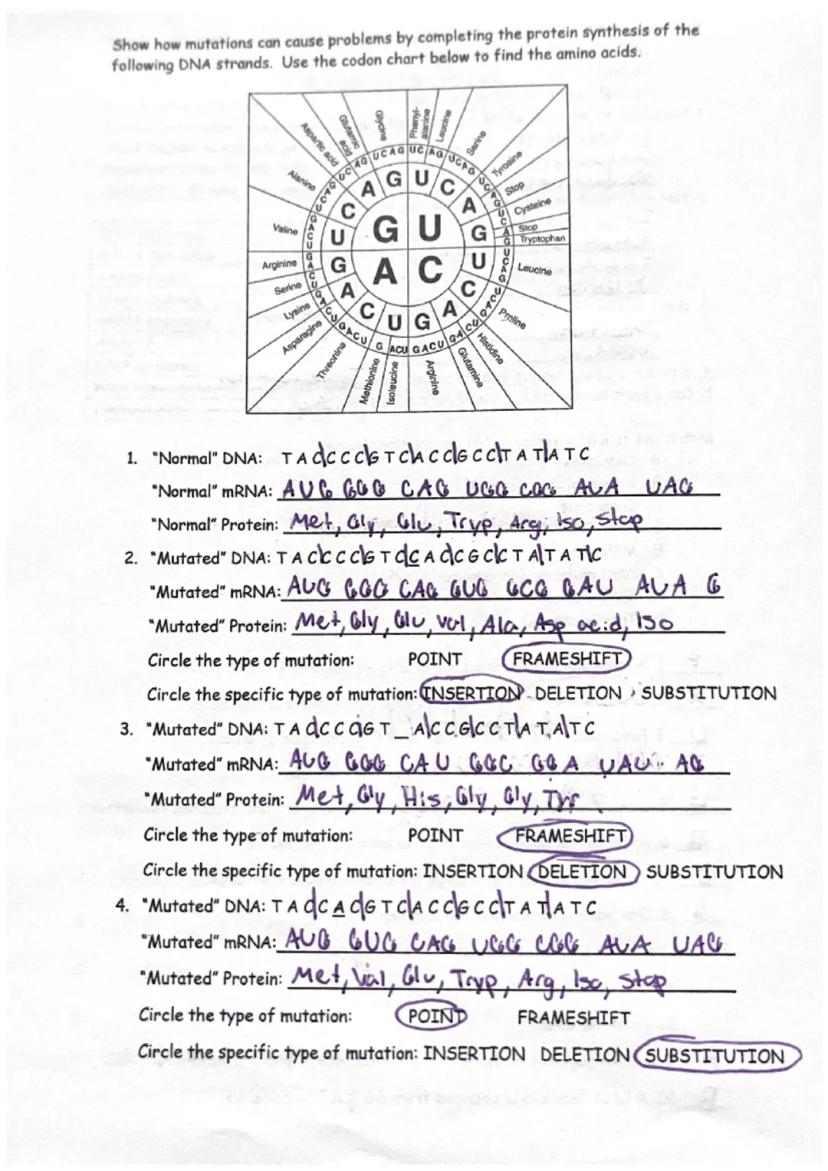 Show how mutations can cause problems by completing the protein synthesis of the
following DNA strands. Use the codon chart below to find the amino acids.
Glycine
Phenyl-
alanine
Leucine
Glutamic
acid
Aspartic acid
Serine
Alanine
Tyrosine
Stop
Valine
Cysteine
Stop
Tryptophan
Arginine
Leucine
Serine
Lysine
Proline
Asparagine
Histidine
Threonine
Glutamine
Methionine
Isoleucine
Arginine
G U
A C
1. "Normal" DNA: T A C C C C G T C A C C G C C T A T A T C
"Normal" mRNA: AUG GGG CAG UGG CGG AUA UAG
"Normal" Protein: Met, Gly, Glu, Tryp, Arg, Iso, Stop
2. "Mutated" DNA: T A C C C C G T C C A C C G C C T A T A T C
"Mutated" mRNA: AUG GGG CAG GUG GCG GAU AUA G
"Mutated" Protein: Met, Gly, Glu, Val, Ala, Asp acid, Iso
Circle the type of mutation: POINT FRAMESHIFT
Circle the specific type of mutation: INSERTION DELETION SUBSTITUTION
3. "Mutated" DNA: T A C C C C G T _ A C C G C C T A T A T C
"Mutated" mRNA: AUG GGG CAU GGC GGA UAU AG
"Mutated" Protein: Met, Gly, His, Gly, Gly, Tyr
Circle the type of mutation: POINT FRAMESHIFT
Circle the specific type of mutation: INSERTION DELETION SUBSTITUTION
4. "Mutated" DNA: T A C C A C G T C A C C G C C T A T A T C
"Mutated" mRNA: AUG GUG CAG UGG CGG AUA UAG
"Mutated" Protein: Met, Val, Glu, Tryp, Arg, Iso, Stop
Circle the type of mutation: POINT FRAMESHIFT
Circle the specific type of mutation: INSERTION DELETION SUBSTITUTION